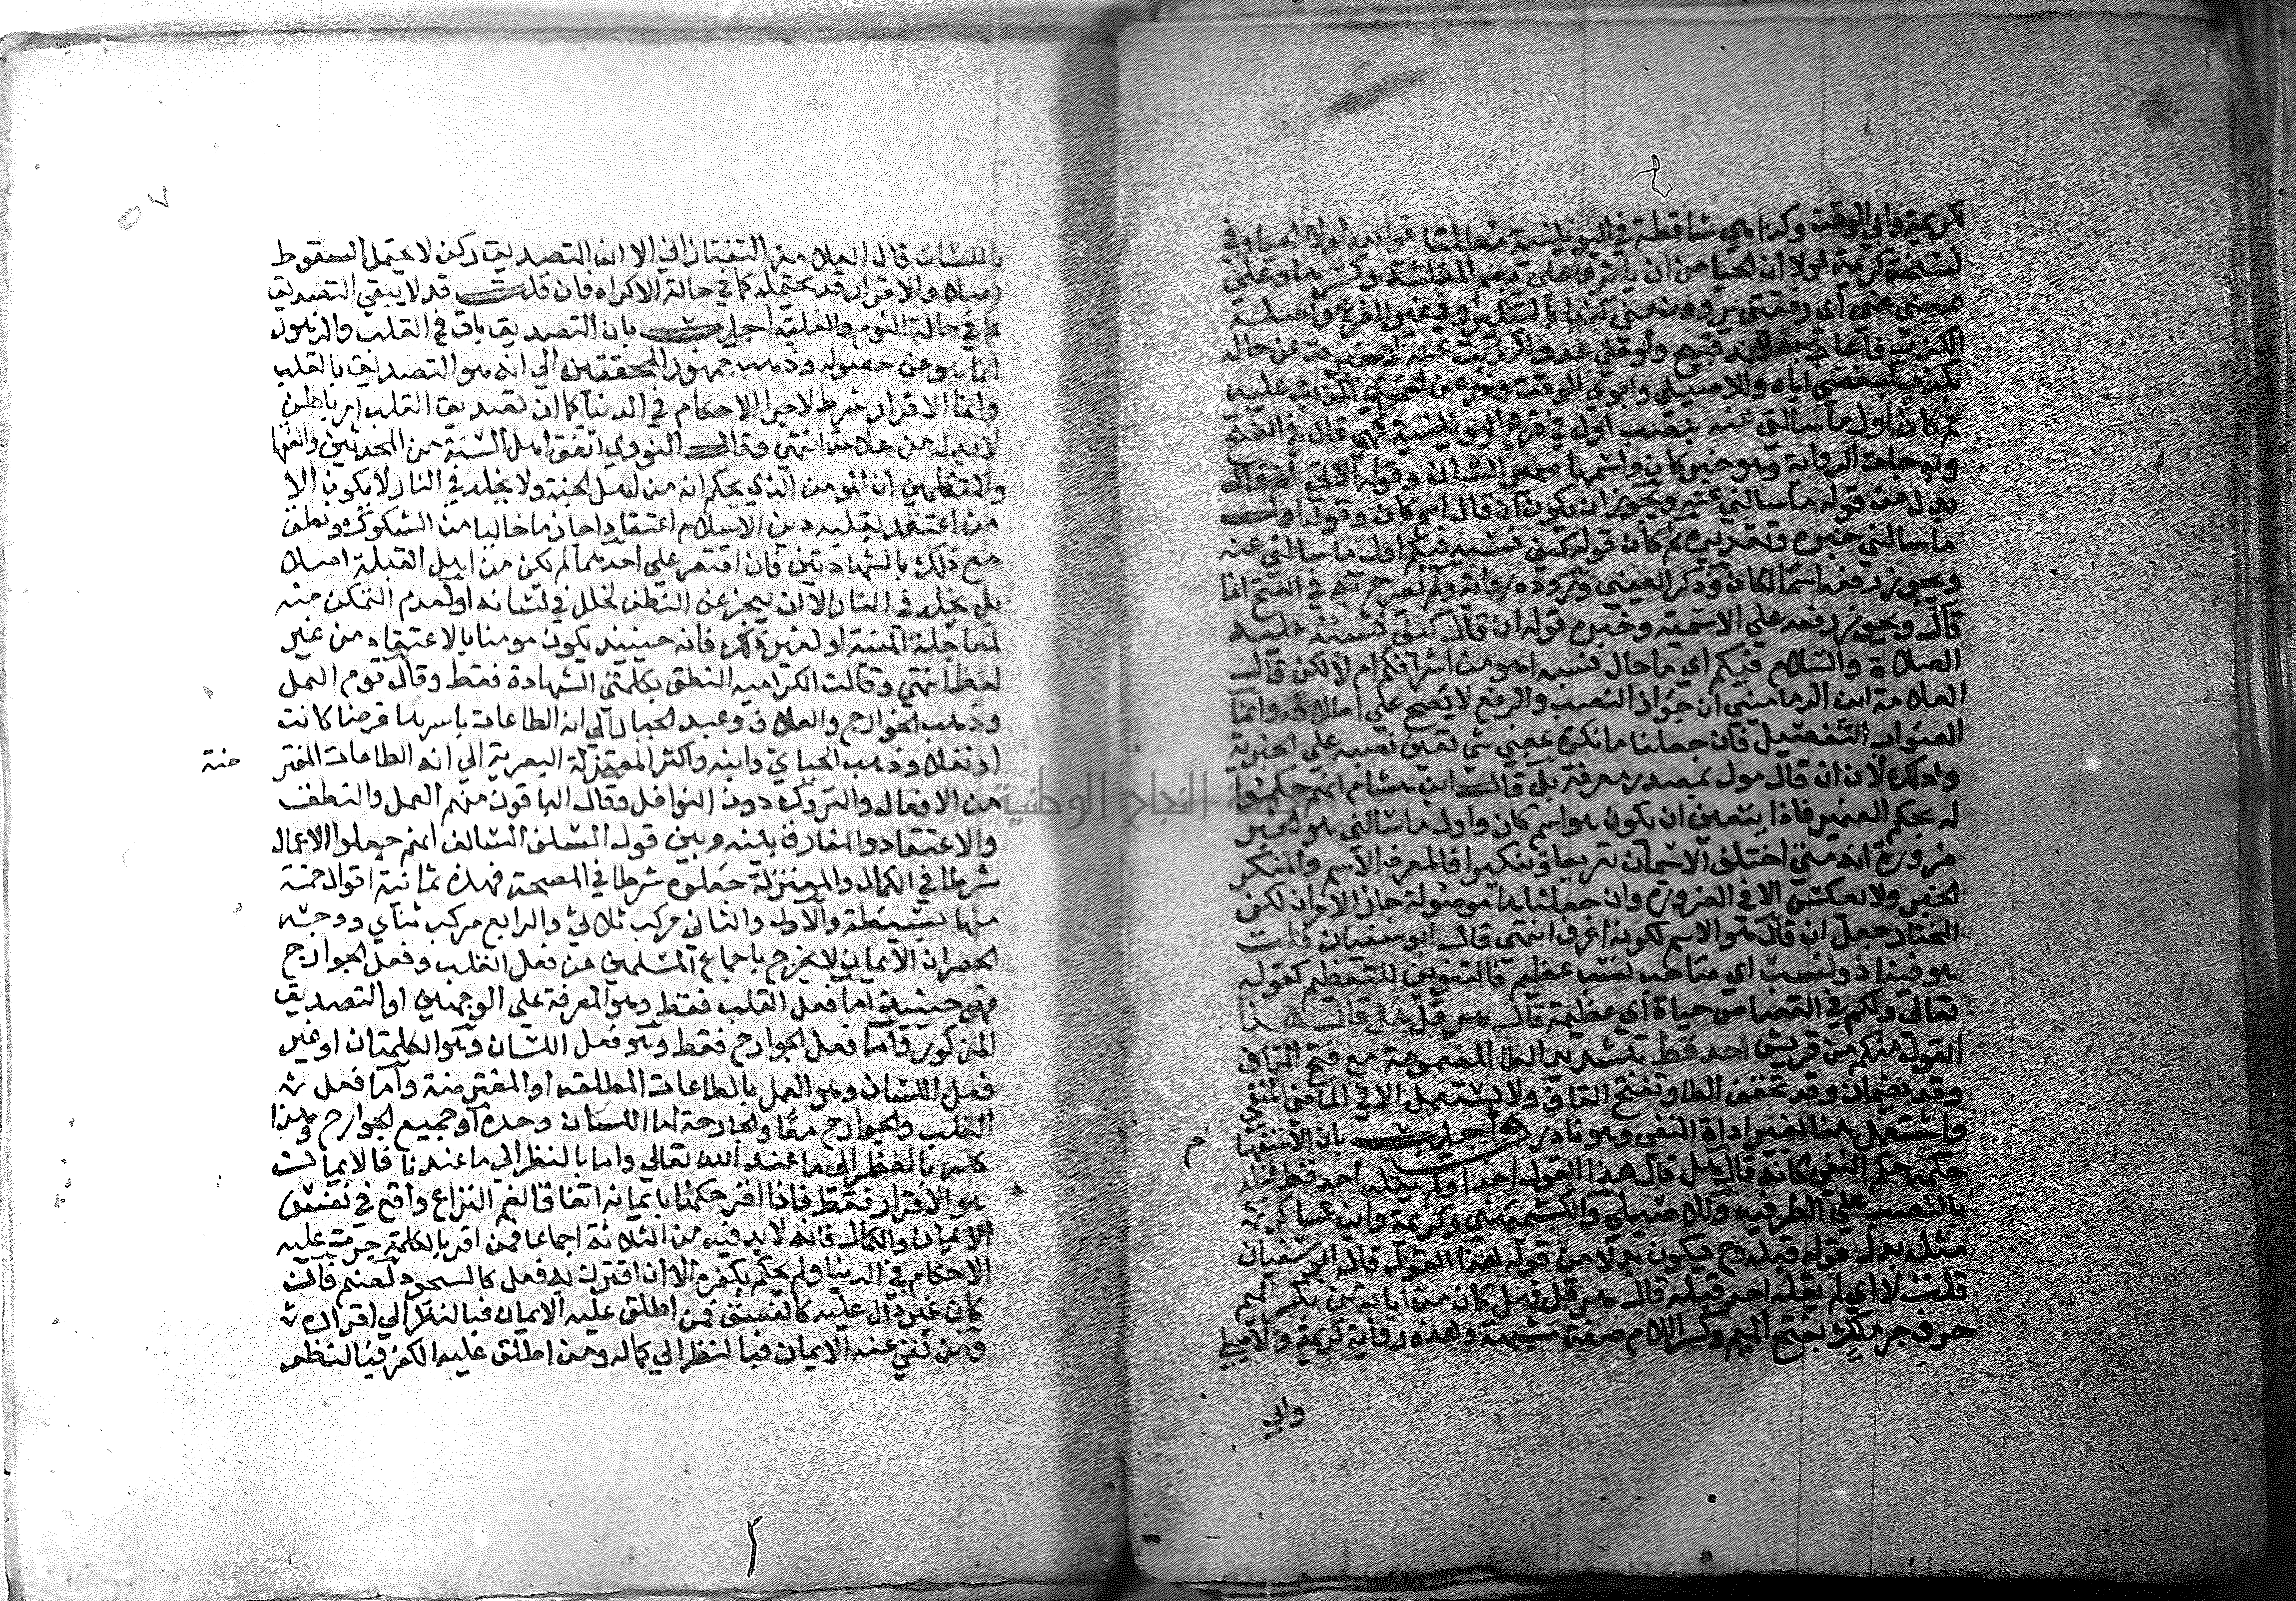 لكريمة وابي الوقت وكذا هي ساقطة في اليونينية مطلقا فوالله لولا الحيا وفي
نسخة كريمة لولا ان الحيا من ان ياثروا على بضم المثلثة وكسرها وعلى
بمعنى عني اى رفقتي يروون عني كذبا بالتنكير وفي غير الفرع واصله
الكذب فاعاب به لانه قبيح ولو على عدو لكذبت عنه لاخبرت عن حاله
بكذب لبغضي اياه وللاصيلي وابوي الوقت وذر عن الحموي لكذبت عليه
ثم كان اول ما سالني عنه بنصب اول في فرع اليونينية كهي قال في الفتح
وبه جات الرواية وهو خبر كان واسمها ضمير الشان وقوله الاتي ان قال
بدل من قوله ما سالني عنه ويجوز ان يكون ان قال اسم كان وقوله اول
ما سالني خبره وتقديره ثم كان قوله كيف نسبه فيكم اول ما سالني عنه
ويجوز رفعه اسما لكان وذكر العيني وروده رواية ولم يصرح به في الفتح انما
قال ويجوز رفعه على الاسمية وخبره قوله ان قال كيف نسبه عليه
الصلاة والسلام فيكم اي ما حال نسبه اهو من اشرافكم ام لا لكن قال
العلامة ابن الدماميني ان جواز النصب والرفع لا يصح على اطلاقه وانما
الصواب التفصيل فان جعلنا ما نكرة بمعنى شي تعين نصبه على الخبرية
وذلك لان ان قال مول بمصدر معرفة بل قال ابن هشام انهم حكموا
له بحكم الضمير فاذا يتعين ان يكون هو اسم كان واول ما سالني هو الخبر
ضرورة انه متى اختلف الاسمان تعريفا وتنكيرا فالمعرف الاسم والمنكر
الخبر ولا يعكس الا في الضرورة وان جعلنا ما موصولة جاز الامران لكن
المختار جعل ان قال هو الاسم لكونه اعرف انتهى قال ابو سفيان قلت
هو فينا ذو نسب اي صاحب نسب عظيم فالتنوين للتعظيم كقوله
تعالى ولكم في القصاص حياة أي عظيمة قال هرقل هل قال هذا
القول منكم من قريش احد قط بتشديد الطا المضمومة مع فتح القاف
وقد يضمان وقد تخفف الطا وتفتح القاف ولا يستعمل الا في الماضي المنفي
واستعمل هنا بغير اداة النفي وهو نادر واجيب بان الاستفها
م
حكمه حكم النفي كانه قال هل قال هذا القول احد اولم يقله احد قط قبله
بالنصب على الظرفيه وللاصيلي والكشميهني وكريمة وابن عساكر
مثله بدل قوله قبله وح فيكون بدلا من قوله هذا القول قال ابو سفيان
قلت لا اي لم يقله احد قبله قال هرقل فهل كان من ابايه من بكسر الميم
حرف جر ملك بفتح الميم وكسر اللام صفة مشبهة وهذه رواية كريمة والاصيلي
وابي
باللسان قال العلامة التفتازاني الا ان التصديق ركن لا يحتمل السقوط
اصلا والاقرار قد يحتمله كما في حالة الاكراه فان قلت قد لا يبقى التصديق
كما في حالة النوم والغفلة اجيب بان التصديق باق في القلب والذهول
انما هو عن حصوله وذهب جمهور المحققين الى انه هو التصديق بالقلب
وانما الاقرار شرط لاجرا الاحكام في الدنيا كما ان تصديق القلب امر باطن
لا بد له من علامة انتهى وقال النووي اتفق اهل السنة من المحدثين والفقها
والمتكلمين ان المومن الذي يحكم انه من اهل الجنة ولا يخلد في النار لا يكون الا
من اعتقد بقلبه دين الاسلام اعتقادا جازما خاليا من الشكوك ونطق
مع ذلك بالشهادتين فان اقتصر على احدهما لم يكن من اهل القبلة اصلا
بل يخلد في النار الا ان يعجز عن النطق لخلل في لسانه او لعدم التمكن منه
لمعاجلة المنية او لغير ذلك فانه حينيذ يكون مومنا بالاعتقاد من غير
لفظ انتهى وقالت الكرامية النطق بكلمتي الشهادة فقط وقال قوم العمل
وذهب الخوارج والعلاف وعبد الجبار الى انه الطاعات باسرها فرضا كانت
او نفلا وذهب الجباي وابنه واكثر المعتزلة البصرية الى انه الطاعات المفتر
ضة
من الافعال والتروك دون النوافل وقال الباقون منهم العمل والنطق
والاعتقاد والفارق بينه وبين قول السلف السالف انهم جعلوا الاعمال
شرطا في الكمال والمعتزلة جعلوه شرطا في الصحة فهذه ثمانية اقوال خمسة
منها بسيطة والاول والثاني مركب ثلاثي والرابع مركب ثنائي ووجه
الحصر ان الايمان لا يخرج باجماع المسلمين عن فعل القلب وفعل الجوارح
فهو حينيذ اما فعل القلب فقط وهو المعرفة على الوجهين او التصديق
المذكور واما فعل الجوارح فقط وهو فعل اللسان وهو الكلمتان او غير
فعل اللسان وهو العمل بالطاعات المطلقة او المفترضة واما فعل
القلب والجوارح معا والجارحة اما اللسان وحده او جميع الجوارح وهذا
كله بالنظر الى ما عند الله تعالى واما بالنظر الى ما عندنا فالايمان
هو الاقرار فقط فاذا اقر حكمنا بايمانه اتفاقا نعم النزاع واقع في نفس
الايمان والكمال فانه لا بد فيه من الثلاثة اجماعا فمن اقر بالكلمة جرت عليه
الاحكام في الدنيا ولم يحكم بكفره الا ان اقترن به فعل كالسجود لصنم فان
كان غير دال عليه كالفسق فمن اطلق عليه الايمان فبالنظر الى اقراره
ومن نفى عنه الايمان فبالنظر الى كماله ومن اطلق عليه الكفر فبالنظر